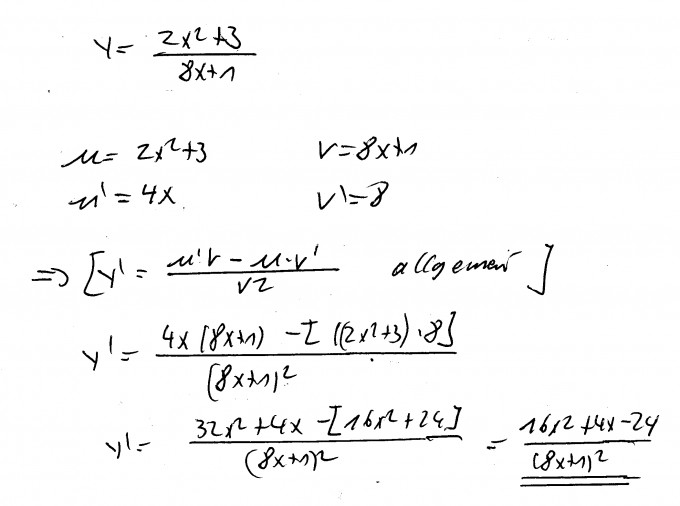 y = (2x²+3)/(8x+1)
u = 2x²+3 v = 8x+1
u' = 4x v' = 8
=> [y' = (u'v - u·v')/v² allgemein]
y' = (4x(8x+1) - [((2x²+3)·8])/(8x+1)²
y' = (32x²+4x - [16x²+24])/(8x+1)² = (16x²+4x-24)/(8x+1)²